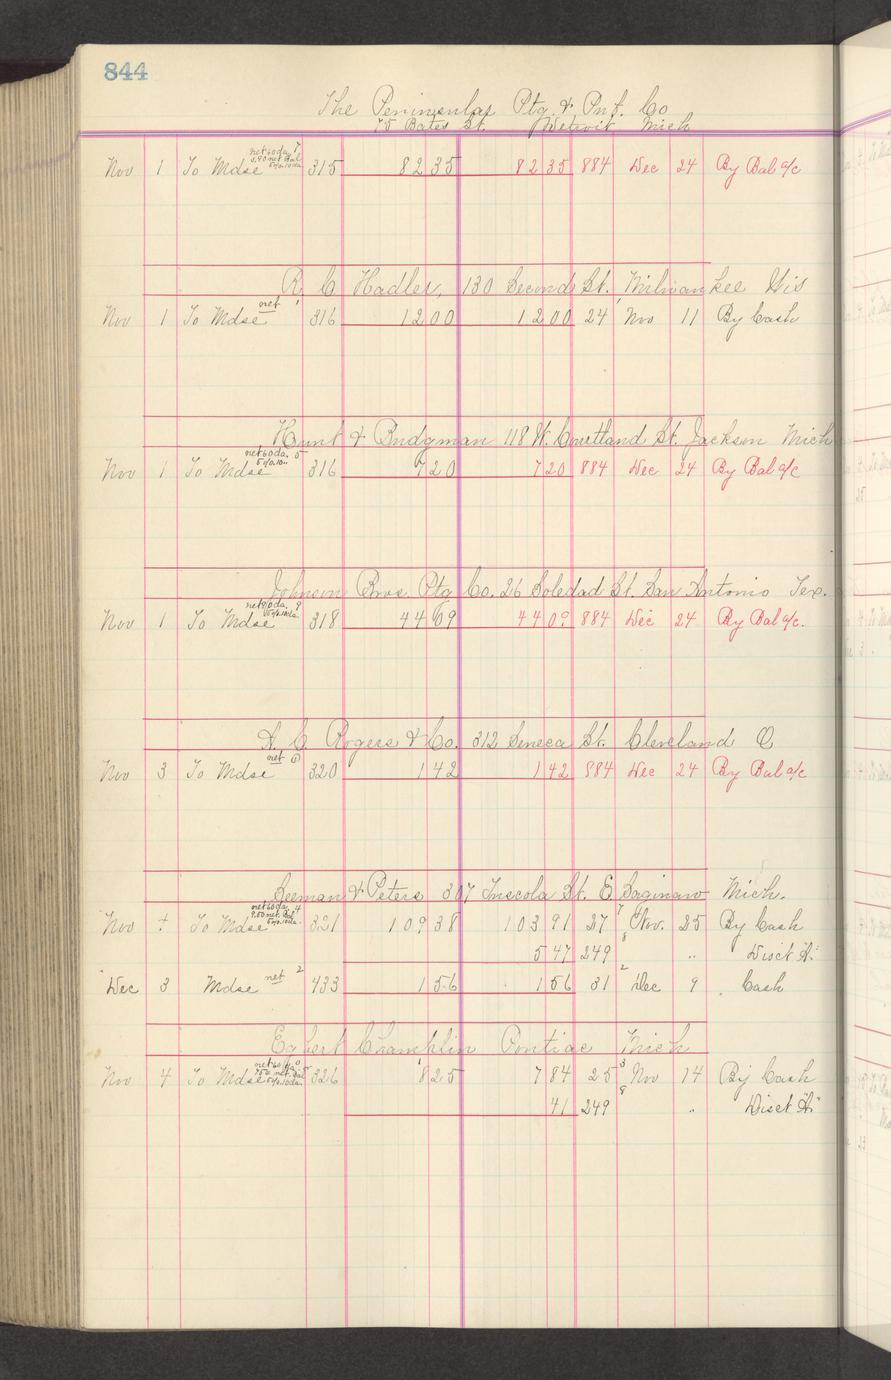 844
The Peninsular Ptg. & Pnt. Co
75 Bates St. Detroit Mich
net 60 da. 7
Nov 1 To Mdse 5% 10 da. 315 82 35 82 35 884 Dec 24 By Bal a/c
R. C. Hadler, 130 Second St., Milwaukee Wis
Nov 1 To Mdse net 316 12 00 12 00 24 Nov 11 By Cash
Hunt & Bridgman 118 W. Courtland St. Jackson Mich
net 60 da. 5
Nov 1 To Mdse 5% 10 " 316 7 20 7 20 884 Dec 24 By Bal a/c
Johnson Bros. Ptg Co. 26 Soledad St. San Antonio Tex.
9
Nov 1 To Mdse 318 44 09 44 09 884 Dec 24 By Bal a/c.
A. C. Rogers & Co. 312 Seneca St. Cleveland O
Nov 3 To Mdse net 320 1 42 1 42 884 Dec 24 By Bal a/c
Seeman & Peters 307 Tuscola St. E Saginaw Mich.
net 60 da. 4
9.50 net Bal
Nov 4 To Mdse 5% 10 da. 321 109 38 103 91 27 7 Nov. 25 By Cash
5 47 249 8 " Disct "A"
Dec 3 Mdse net 2 433 1 56 1 56 31 2 Dec 9 Cash
Egbert Champlin Pontiac Mich
net 60 da.
Nov 4 To Mdse 5% 10 da. 326 8 25 7 84 25 3 Nov 14 By Cash
41 249 8 " Disct "A"